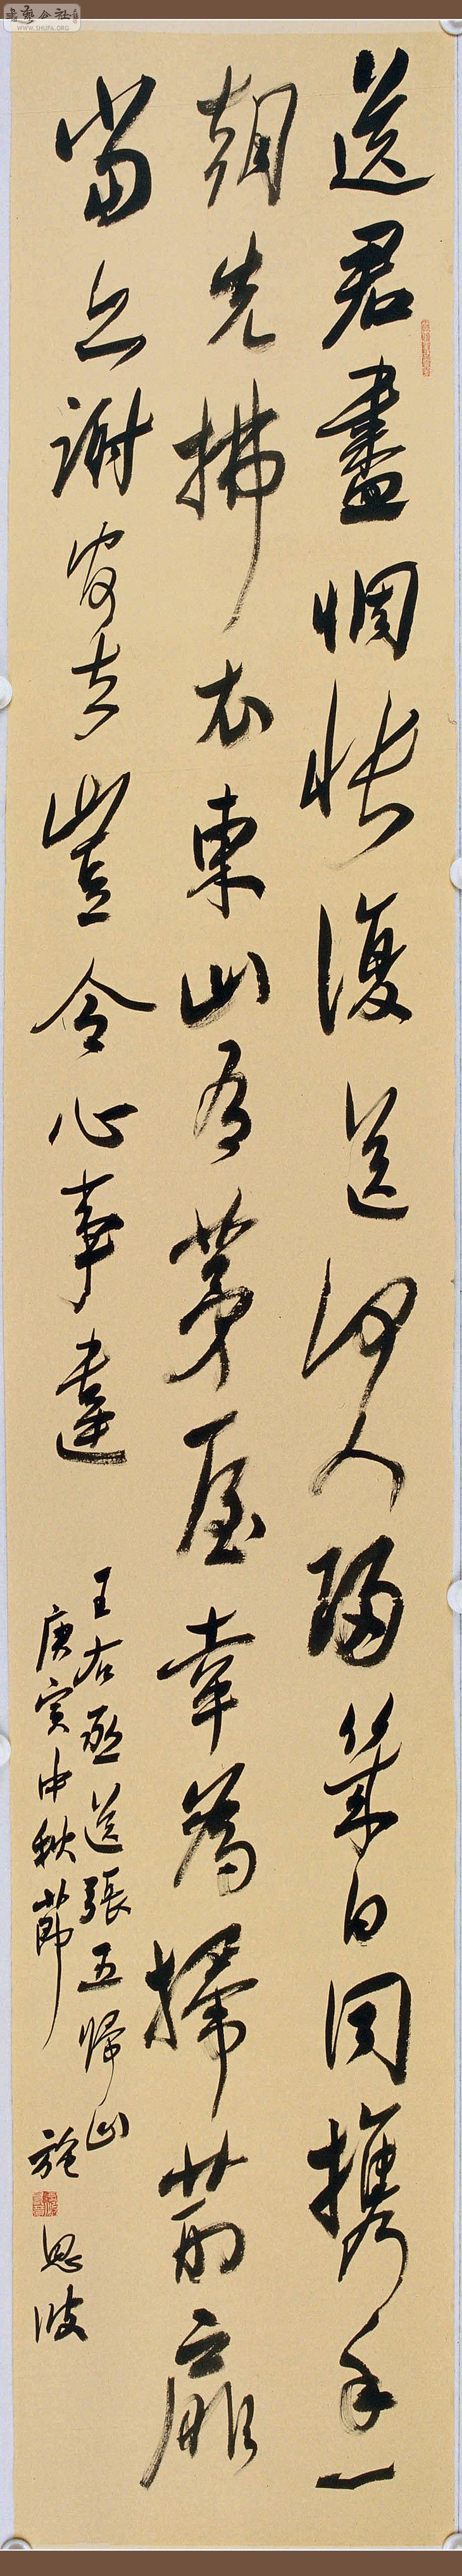 送君盡惆悵復送何人歸幾日同携手一
朝先拂衣東山有茅屋幸為掃荊扉
當亦謝官去豈令心事違
王右丞送張五歸山
庚寅中秋節 施恩波
WWW.SHUFA.ORG